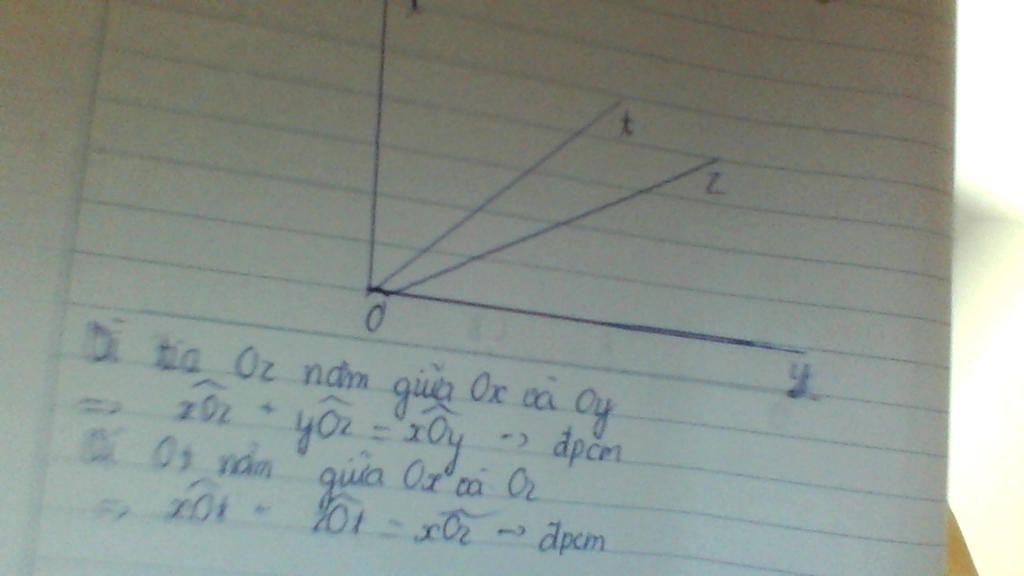 t
z
O
y
Vì tia Oz nằm giữa Ox và Oy
=> xOz + yOz = xOy -> đpcm
Vì Ot nằm giữa Ox và Oz
=> xOt + zOt = xOz -> đpcm